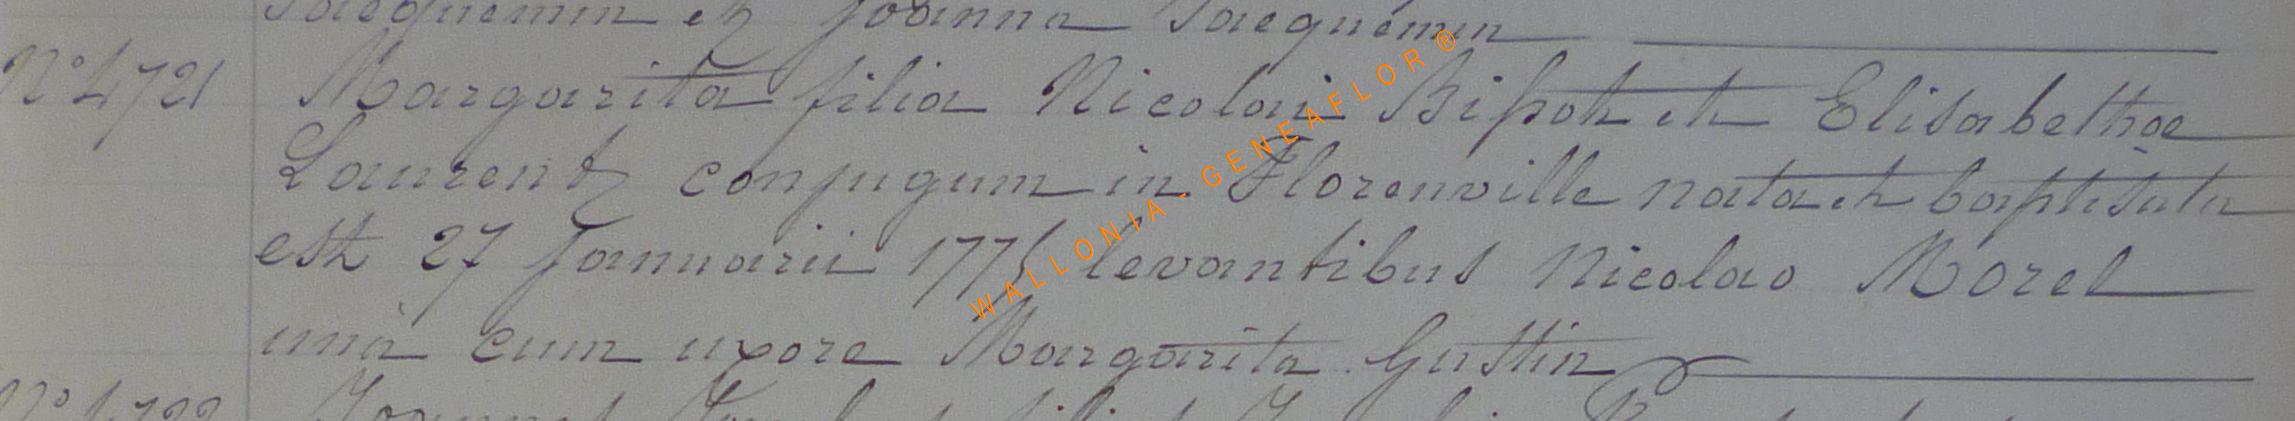 Jacquemin et Joanna Jacquemin
N° 4721 Margarita filia Nicolai Bifsot et Elisabethae
Laurent conjugum in Florenville nata et baptisata
est 27 Januarii 1775 levantibus Nicolao Morel
una cum uxore Margarita Gustin
N° 4722 Joannes
WALLONIA - GENEAFLOR ®